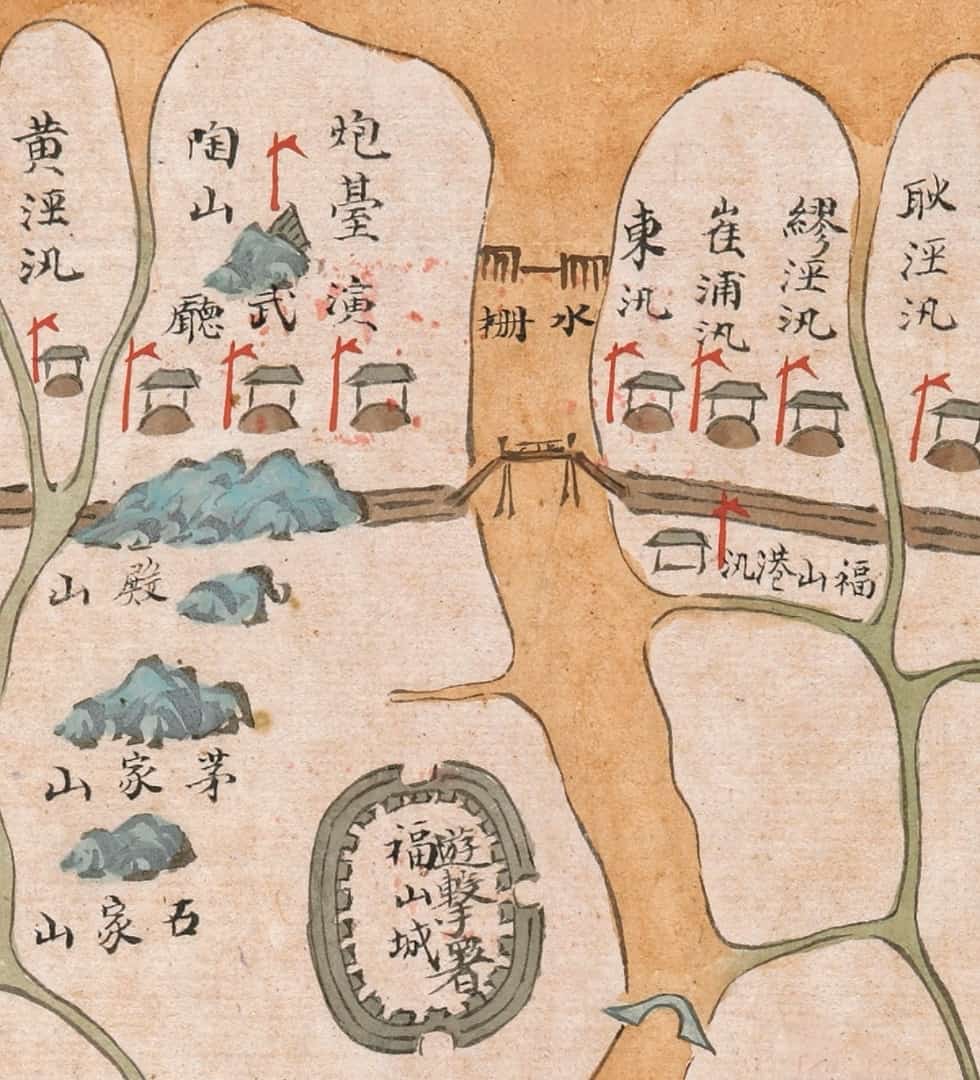 耿涇汛
繆涇汛
崔浦汛
東汛
水柵
炮臺
陶山
演武廳
黄涇汛
福山港汛
殿山
茅家山
古家山
遊擊署
福山城